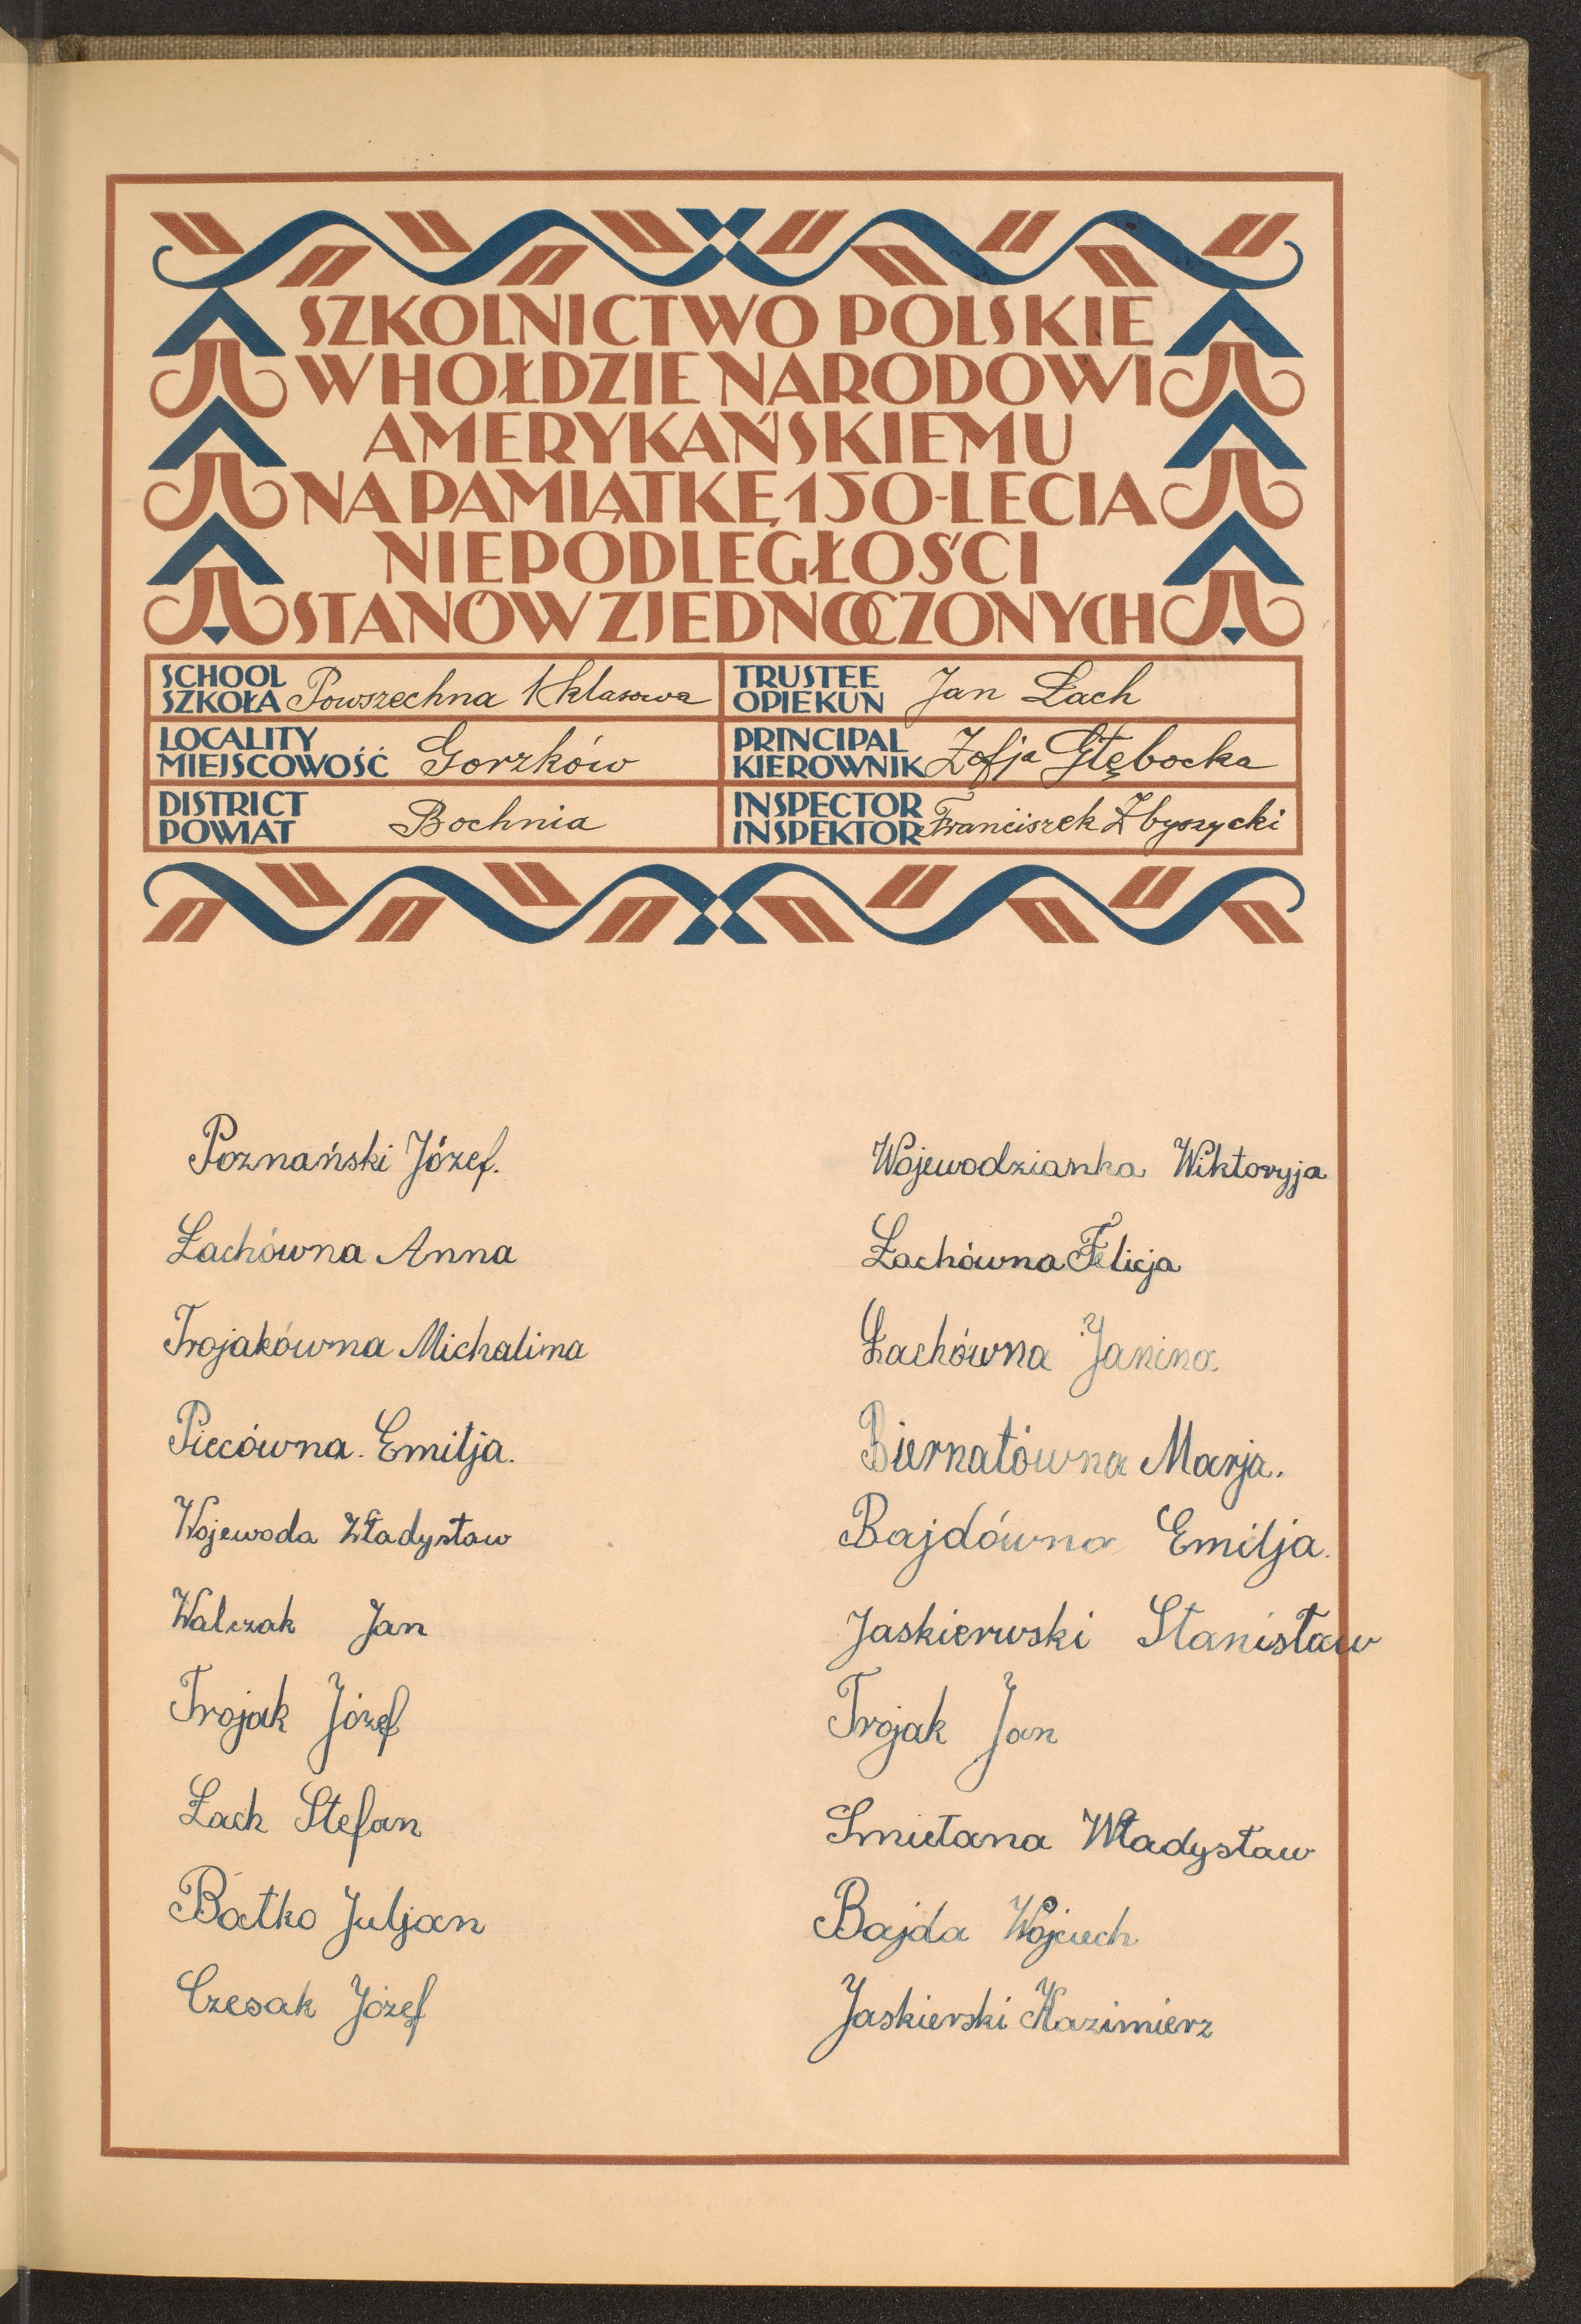 SZKOLNICTWO POLSKIE
W HOŁDZIE NARODOWI
AMERYKAŃSKIEMU
NA PAMIĄTKĘ 150-LECIA
NIEPODLEGŁOŚCI
STANÓW ZJEDNOCZONYCH
SCHOOL
SZKOŁA Powszechna 1 klasowa
TRUSTEE
OPIEKUN Jan Łach
LOCALITY
MIEJSCOWOŚĆ Gorzków
PRINCIPAL
KIEROWNIK Zofja Głębocka
DISTRICT
POWIAT Bochnia
INSPECTOR
INSPEKTOR Franciszek Zbyszycki
Poznański Józef.
Łachówna Anna
Trojakówna Michalina
Piecówna. Emilja.
Wojewoda Władysław
Walczak Jan
Trojak Józef
Łach Stefan
Batko Juljan
Czesak Józef
Wojewodzianka Wiktoryja
Łachówna Felicja
Łachówna Janina.
Biernatówna Marja.
Bajdówna Emilja.
Jaskierwski Stanisław
Trojak Jan
Smietana Władysław
Bajda Wojciech
Jaskierski Kazimierz